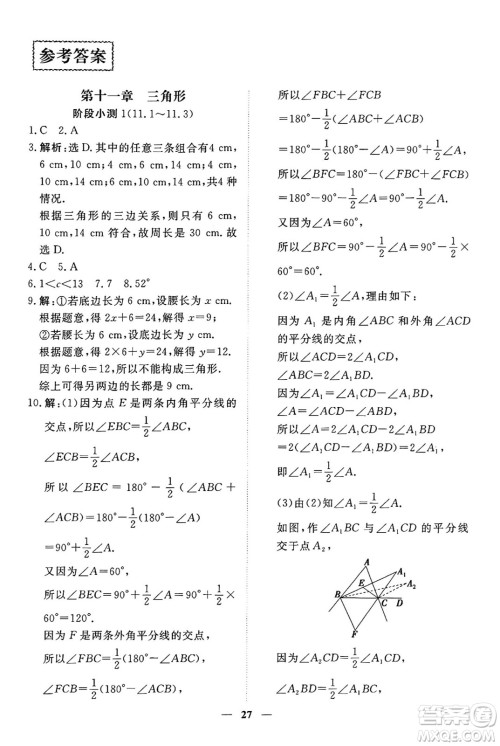 参考答案
第十一章 三角形
阶段小测1(11.1～11.3)
1.C 2.A
3.解析:选D.其中的任意三条组合有4 cm,
6 cm,10 cm;4 cm,6 cm,14 cm;
6 cm,10 cm,14 cm;4 cm,10 cm,14 cm,共4种
情况.
根据三角形的三边关系,则只有6 cm,
10 cm,14 cm符合,故周长是30 cm.故
选D.
4.C 5.A
6.1<c<13 7.7 8.52°
9.解:①若底边长为6 cm,设腰长为x cm.
根据题意,得2x+6=24,解得x=9.
②若腰长为6 cm,设底边长为x cm.
根据题意,得2×6+x=24,解得x=12.
因为6+6=12,所以不能构成三角形.
综上可得另两边的长都是9 cm.
10.解:(1)因为点E是两条内角平分线的
交点,所以∠EBC=1/2∠ABC,
∠ECB=1/2∠ACB,
所以∠BEC=180°-1/2(∠ABC+
∠ACB)=180°-1/2(180°-∠A)
=90°+1/2∠A.
又因为∠A=60°,
所以∠BEC=90°+1/2∠A=90°+1/2×
60°=120°.
因为F是两条外角平分线的交点,
所以∠FBC=1/2(180°-∠ABC),
∠FCB=1/2(180°-∠ACB),
所以∠FBC+∠FCB
=180°-1/2(180°-∠A)
=90°+1/2∠A,
所以∠BFC=180°-(∠FBC+∠FCB)
=90°-1/2∠A.
又因为∠A=60°,
所以∠BFC=90°-1/2∠A=90°-1/2×
60°=60°.
(2)∠A₁=1/2∠A,理由如下:
因为A₁是内角∠ABC和外角∠ACD
的平分线的交点,
所以∠A₁=∠A₁CD-∠A₁BD,
∠A=∠ACD-∠ABD
=2∠A₁CD-2∠A₁BD
=2(∠A₁CD-∠A₁BD)=2∠A₁,
即∠A₁=1/2∠A.
(3)由(2)可得∠A₁=1/2∠A.
如图,作∠A₁BC与∠A₁CD的平分线
交于点A₂,
A
A₁
E
A₂
B
C
D
F
因为∠A₂CD=1/2∠A₁CD,
∠A₂BD=1/2∠A₁BD,
27